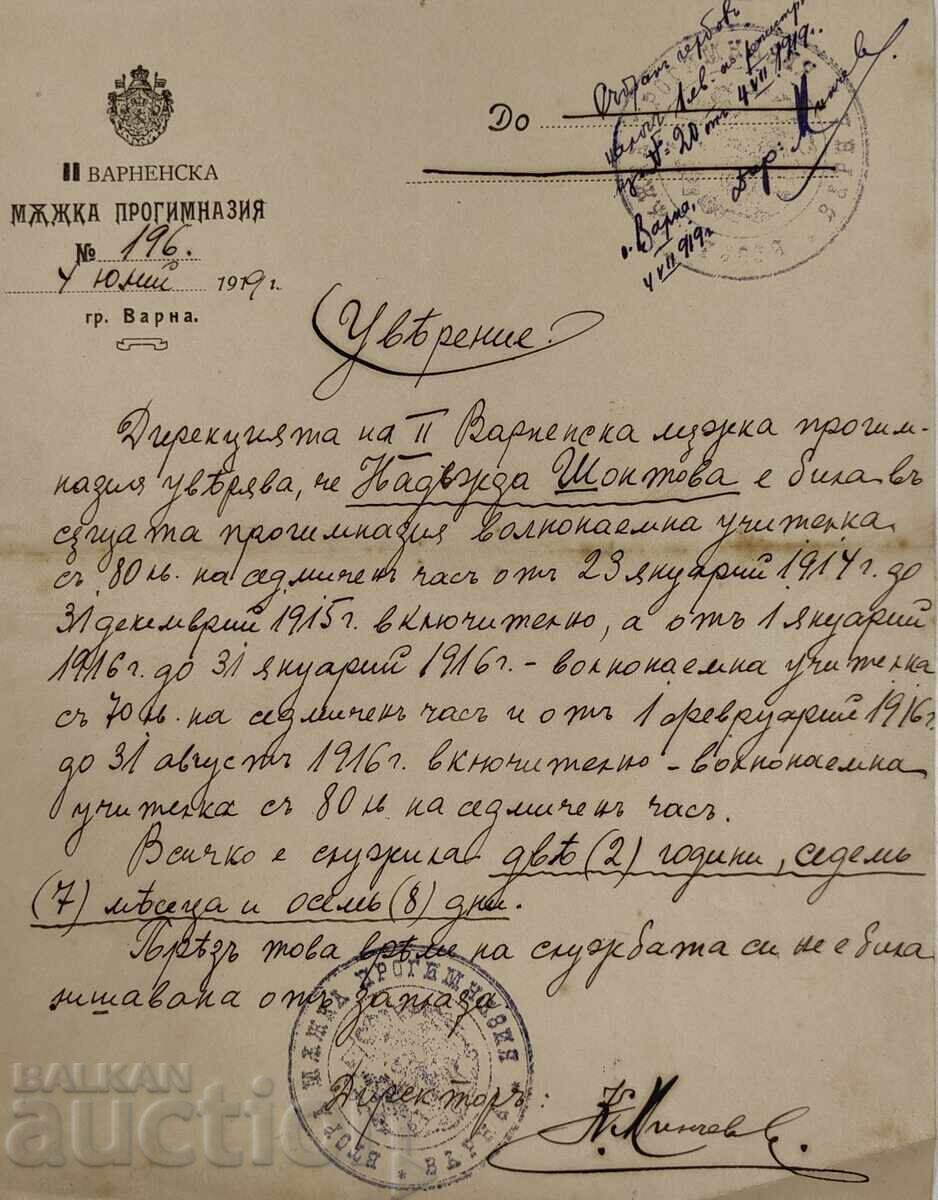 II ВАРНЕНСКА
МѪЖКА ПРОГИМНАЗИЯ
№ 196.
4 юний 1919 г.
гр. Варна.
До
гербовъ
налогъ 1 лв.
№ 20 отъ 4 VII 919г.
г. Варна,
4 VII 919 г.
Дир: Минчев
Увѣрение.
Дирекцията на II Варненска мѫжка прогим-
назия увѣрява, че Надѣжда Шоптова е била въ
сѫщата прогимназия волнонаемна учителка
съ 80 лв. на седмиченъ часъ отъ 23 януарий 1914 г. до
31 декемврий 1915 г. включително, а отъ 1 януарий
1916 г. до 31 януарий 1916 г. – волнонаемна учителка
съ 70 лв. на седмиченъ часъ и отъ 1 февруарий 1916 г.
до 31 августъ 1916 г. включително – волнонаемна
учителка съ 80 лв. на седмиченъ часъ.
Всичко е служила двѣ (2) години, седемь
(7) мѣсеца и осемь (8) дни.
Прѣзъ това врѣме на службата си не е била
лишавана отъ заплата.
Директоръ: Минчев
ВТОРА МѪЖКА ПРОГИМНАЗИЯ * ВАРНА *
BALKAN
auction